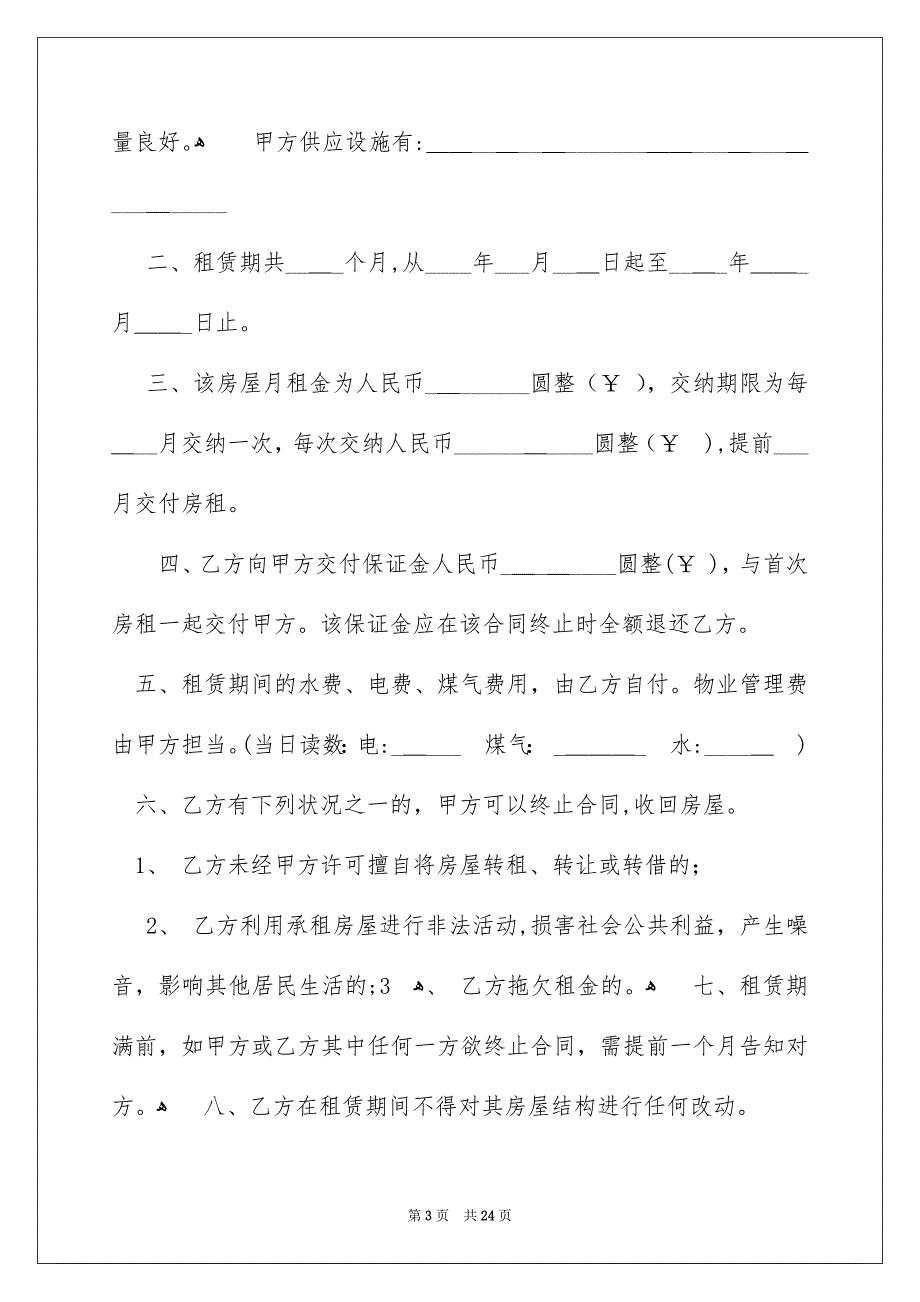 量良好。ﻫ　　甲方供应设施有:_________________________________
__________
二、租赁期共_____个月,从____年___月____日起至_____年_____
月_____日止。
三、该房屋月租金为人民币_________圆整（￥ ），交纳期限为每
____月交纳一次，每次交纳人民币____________圆整（￥　),提前___
月交付房租。
四、乙方向甲方交付保证金人民币__________圆整(￥ )，与首次
房租一起交付甲方。该保证金应在该合同终止时全额退还乙方。
五、租赁期间的水费、电费、煤气费用，由乙方自付。物业管理费
由甲方担当。(当日读数：电:______　煤气：________　水:______　)
六、乙方有下列状况之一的，甲方可以终止合同,收回房屋。
1、 乙方未经甲方许可擅自将房屋转租、转让或转借的；
2、 乙方利用承租房屋进行非法活动,损害社会公共利益，产生噪
音，影响其他居民生活的;3　ﻫ、 乙方拖欠租金的。ﻫ　　七、租赁期
满前，如甲方或乙方其中任何一方欲终止合同，需提前一个月告知对
方。ﻫ　　八、乙方在租赁期间不得对其房屋结构进行任何改动。
第 3 页　共 24 页